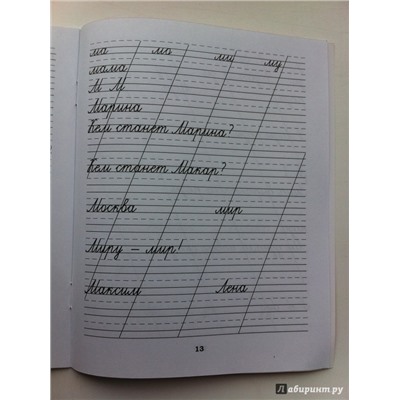 ма мо ми му
мама
М М
Марина
Кем станет Марина?
Кем станет Макар?
Москва мир
Миру — мир!
Максим Лена
13
Лабиринт.ру